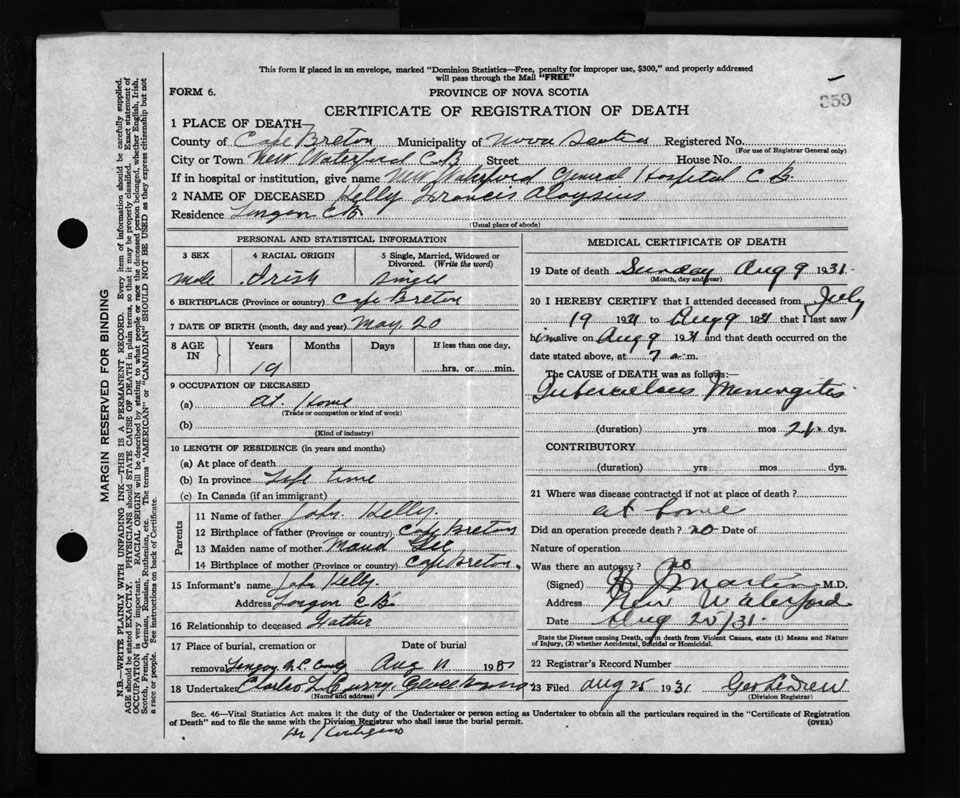 This form if placed in an envelope, marked "Dominion Statistics—Free, penalty for improper use, $300," and properly addressed
will pass through the Mail "FREE"
FORM 6. PROVINCE OF NOVA SCOTIA 359
CERTIFICATE OF REGISTRATION OF DEATH
1 PLACE OF DEATH
County of Cape Breton Municipality of Nova Scotia Registered No.
(For use of Registrar General only)
City or Town New Waterford C.B. Street House No.
If in hospital or institution, give name New Waterford General Hospital C B.
2 NAME OF DECEASED Kelly Francis Aloysius
Residence Lingan C.B.
(Usual place of abode)
PERSONAL AND STATISTICAL INFORMATION
3 SEX 4 RACIAL ORIGIN 5 Single, Married, Widowed or Divorced. (Write the word)
Male Irish Single
6 BIRTHPLACE (Province or country) Cape Breton
7 DATE OF BIRTH (month, day and year) May. 20
8 AGE IN Years Months Days If less than one day,
19 hrs. or min.
9 OCCUPATION OF DECEASED
(a) At Home
(Trade or occupation or kind of work)
(b)
(Kind of industry)
10 LENGTH OF RESIDENCE (in years and months)
(a) At place of death
(b) In province Life time
(c) In Canada (if an immigrant)
Parents
11 Name of father John Kelly.
12 Birthplace of father (Province or country) Cape Breton
13 Maiden name of mother Maud
14 Birthplace of mother (Province or country) Cape Breton.
15 Informant's name John Kelly.
Address Lingan C.B.
16 Relationship to deceased Father
17 Place of burial, cremation or Date of burial
removal Aug 11 193
18 Undertaker Charles L Curry
(Name and address)
MEDICAL CERTIFICATE OF DEATH
19 Date of death Sunday Aug 9 1931.
(Month, day and year)
20 I HEREBY CERTIFY that I attended deceased from July
19 1931 to Aug 9 1931 that I last saw
him alive on Aug 9 1931 and that death occurred on the
date stated above, at 7 a. m.
The CAUSE of DEATH was as follows:—
Tuberculous Meningitis
(duration) yrs mos 21 dys.
CONTRIBUTORY
(duration) yrs mos. dys.
21 Where was disease contracted if not at place of death?
at home
Did an operation precede death? no Date of
Nature of operation
Was there an autopsy? no
(Signed) Martin M.D.
Address New Waterford
Date Aug 25/31.
State the Disease causing Death, or in death from Violent Causes, state (1) Means and Nature
of Injury, (2) whether Accidental, Suicidal or Homicidal.
22 Registrar's Record Number
23 Filed Aug 25 1931 Geo
(Division Registrar)
Sec. 46—Vital Statistics Act makes it the duty of the Undertaker or person acting as Undertaker to obtain all the particulars required in the "Certificate of Registration
of Death" and to file the same with the Division Registrar who shall issue the burial permit. (OVER)
MARGIN RESERVED FOR BINDING
N.B.—WRITE PLAINLY WITH UNFADING INK—THIS IS A PERMANENT RECORD. Every item of information should be carefully supplied.
AGE should be stated EXACTLY. PHYSICIANS should STATE CAUSE OF DEATH in plain terms, so that it may be properly classified. Exact statement of
OCCUPATION is very important. RACIAL ORIGIN will be described by stating to what people or race the deceased person belonged, whether English, Irish,
Scotch, French, German, Russian, Ruthenian, etc. The terms "AMERICAN" or "CANADIAN" SHOULD NOT BE USED as they express citizenship but not
a race or people. See instructions on back of Certificate.